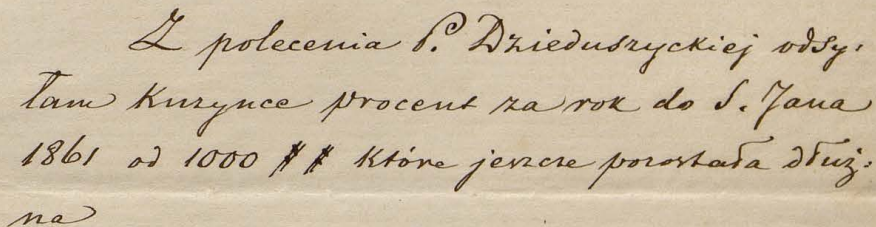 Z polecenia P. Dzieduszyckiej odsy:
łam Kuzynce procent za rok do S. Jana
1861 od 1000 ## które jeszcze pozostała dłuż:
na